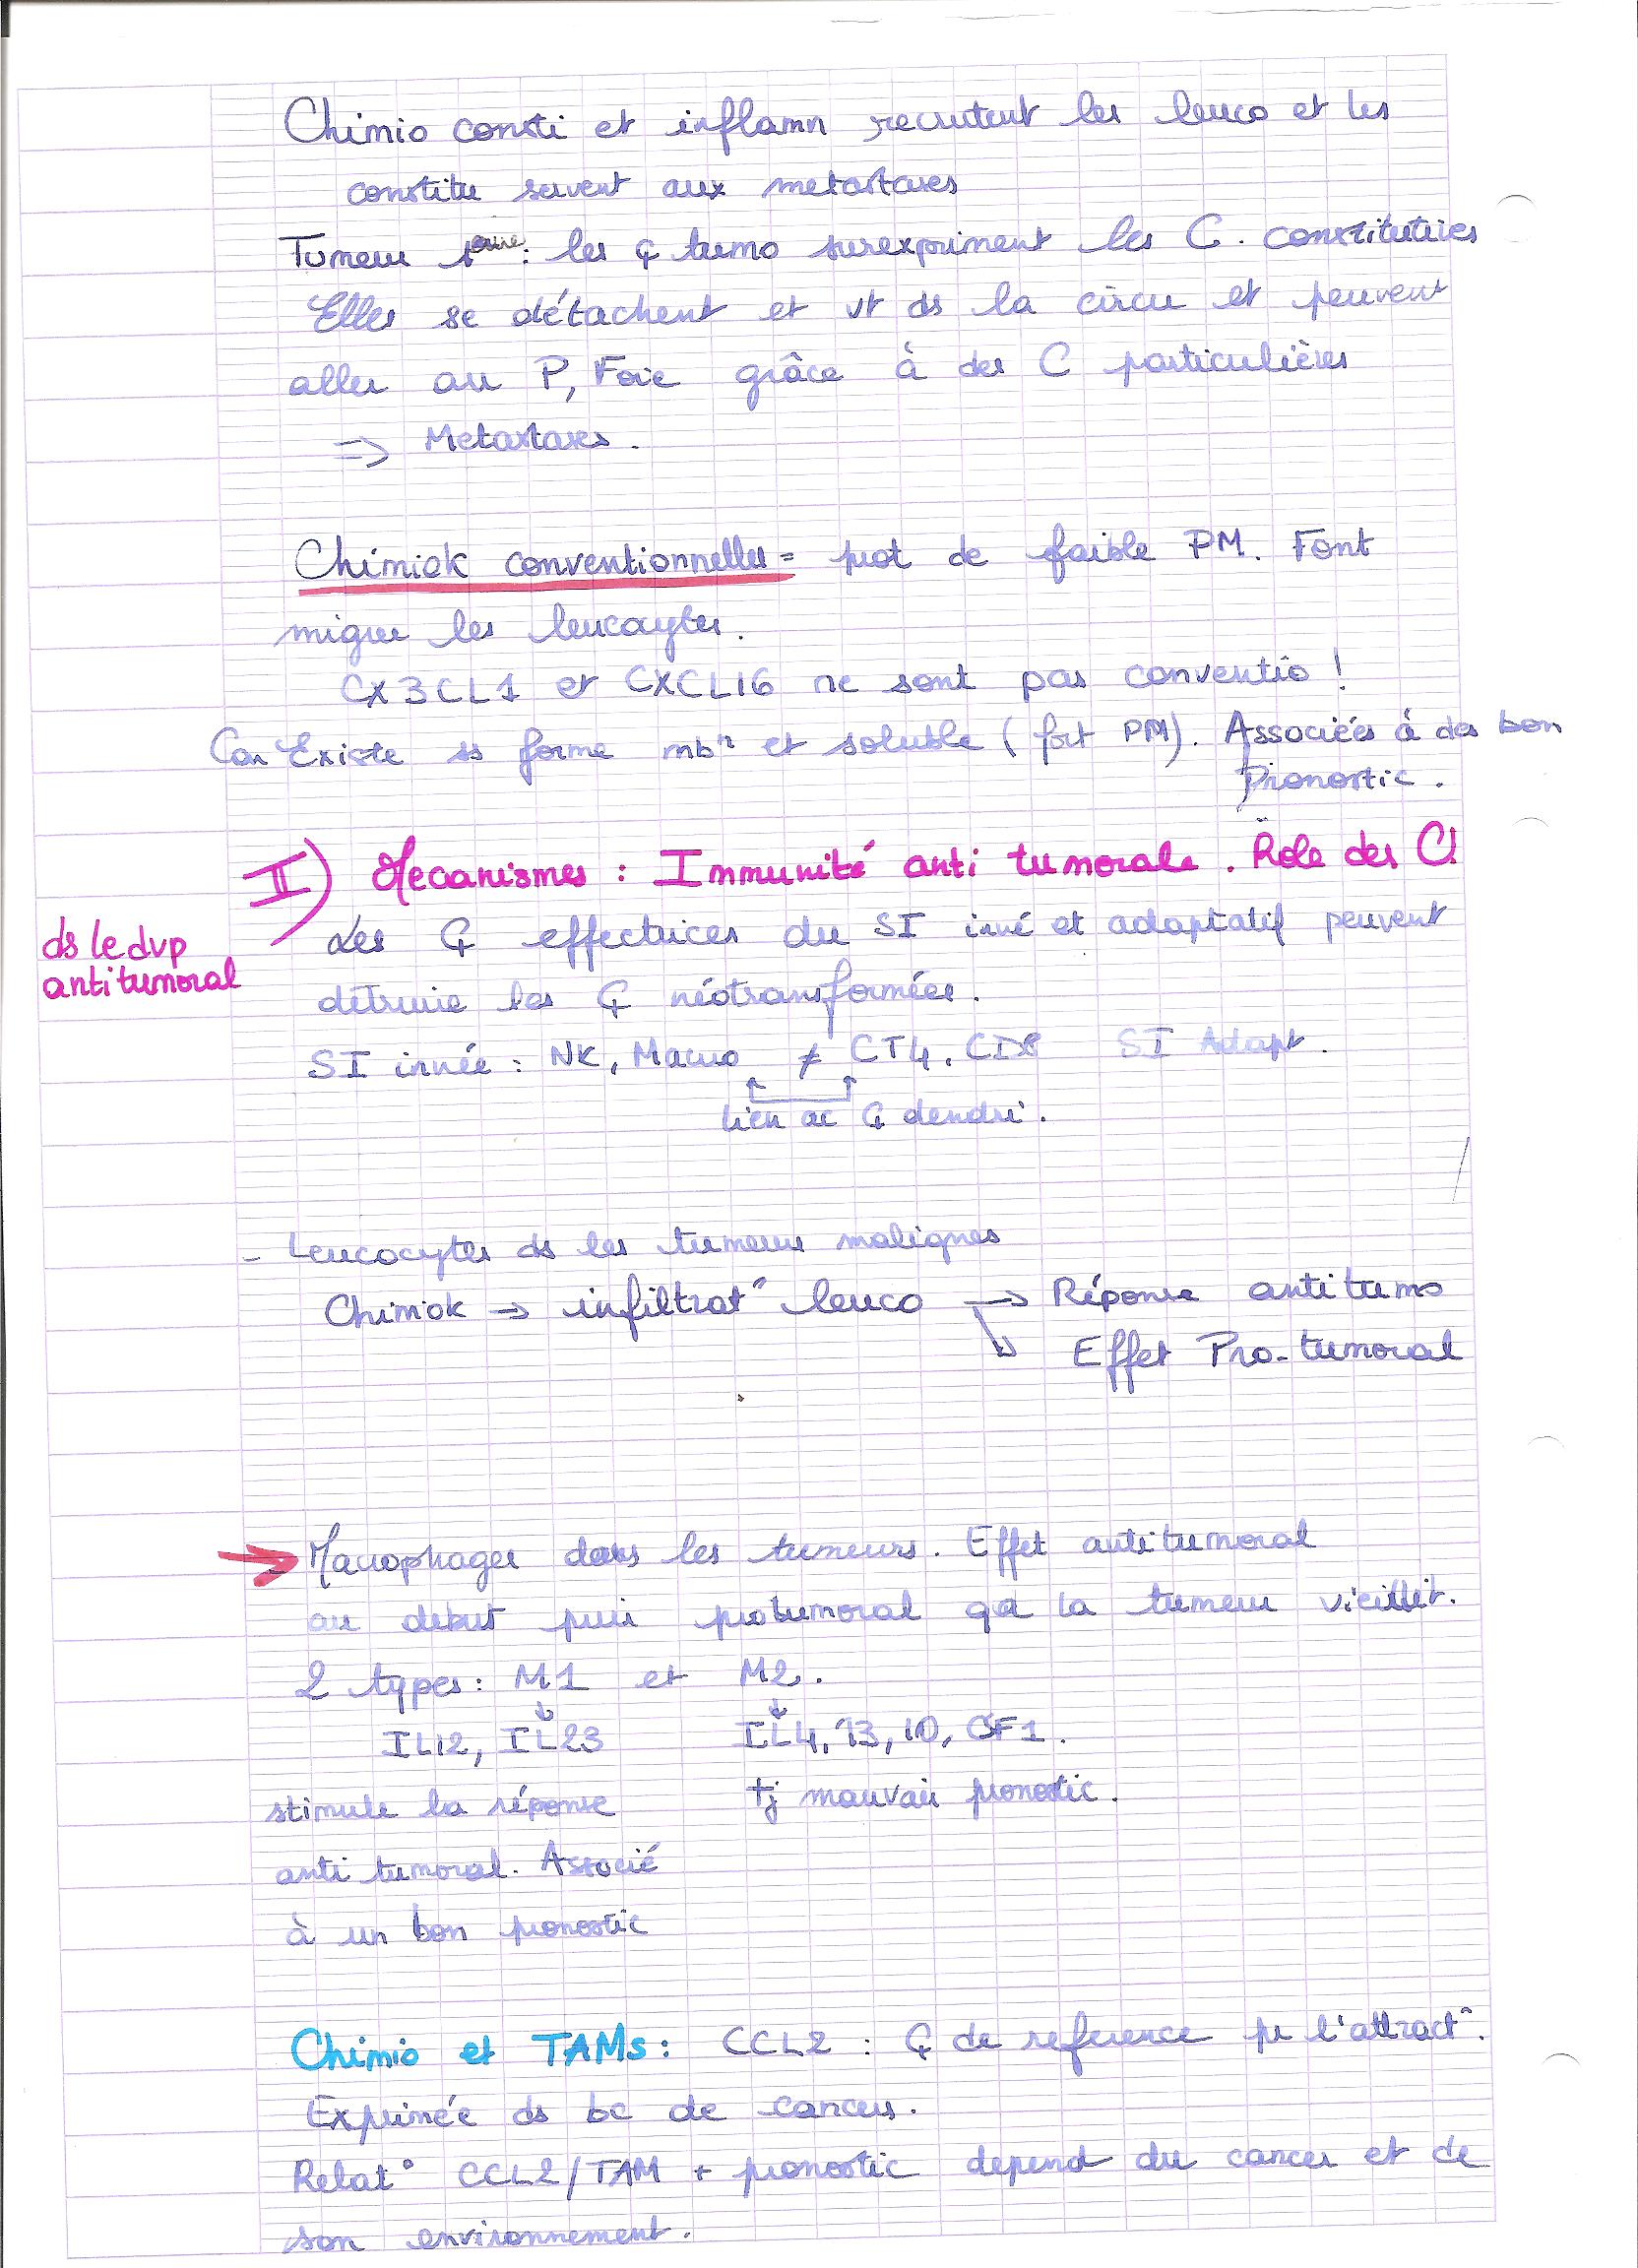 Chimio consti et inflamn recrutent les leuco et les
constitu servent aux metastases
Tumeur 1aire : les ₵ tumo surexpriment les C. constitutives
Elles se détachent et vt ds la circu et peuvent
aller au P, Foie grâce à des C particulières
=> Metastases.
Chimiok conventionnelles = prot de faible PM. Font
migrer les leucocytes.
CX3CL1 et CXCL16 ne sont pas conventio !
Car Existe ss forme mbr et soluble (fort PM). Associées à des bon
Pronostic.
II) Mecanismes : Immunité anti tumorale. Role des C!
ds le dvp
antitumoral
Les ₵ effectrices du SI inné et adaptatif peuvent
détruire les ₵ néotransformées.
SI innée : NK, Macro ≠ CT4, CD8 SI Adapt.
lien ac ₵ dendri.
- Leucocytes ds les tumeurs malignes
Chimiok => infiltrat° leuco -> Réponse antitumo
Effet Pro-tumoral
-> Macrophages dans les tumeurs. Effet antitumoral
au debut puis protumoral qd la tumeur vieillit.
2 types : M1 et M2.
↓ ↓
IL12, IL23 IL4, 13, 10, CSF1.
stimule la réponse tj mauvais pronostic.
anti tumoral. Associé
à un bon pronostic
Chimio et TAMs : CCL2 : ₵ de reference pr l'attract°.
Exprimée ds bc de cancers.
Relat° CCL2/TAM + pronostic depend du cancer et de
son environnement.